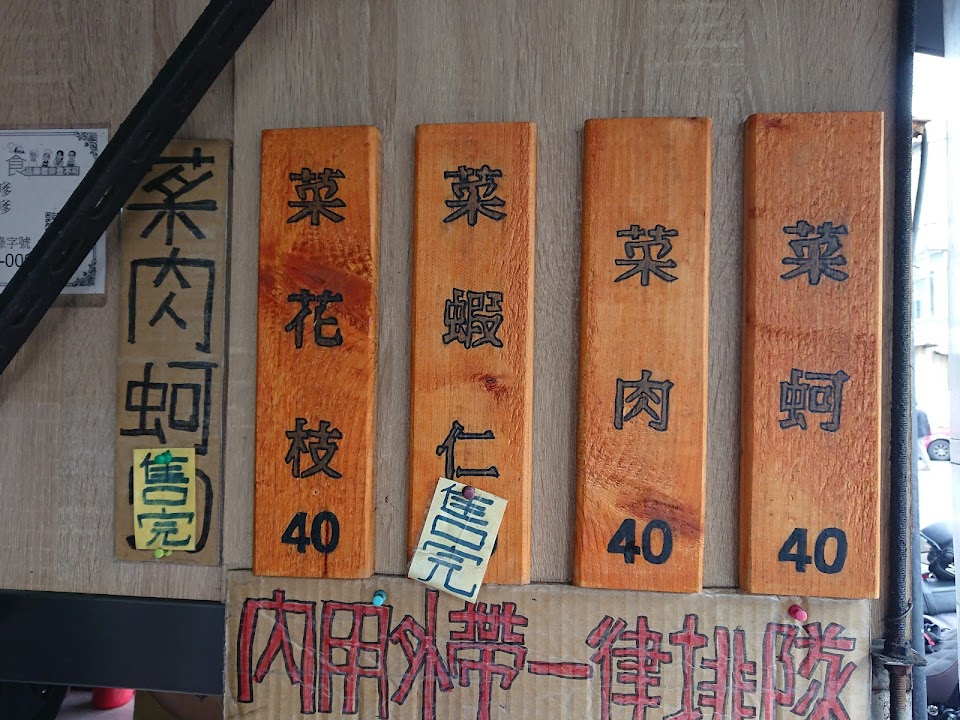 菜肉蚵
售完
菜花枝
40
菜蝦仁
售完
菜肉
40
菜蚵
40
內用外帶一律排隊